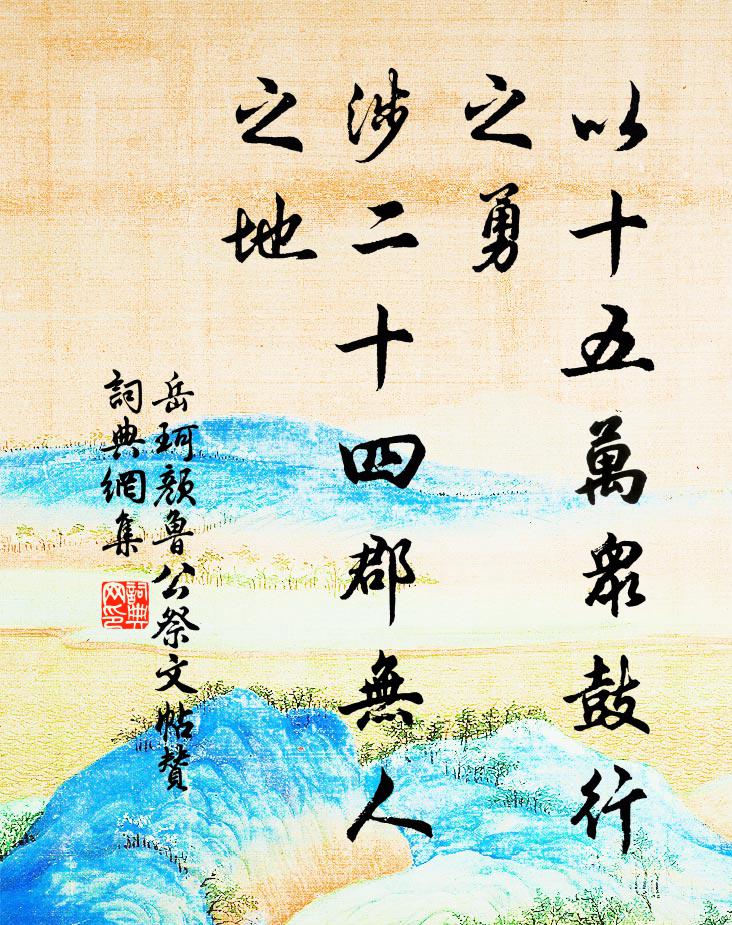 以十五萬眾鼓行
之勇
涉二十四郡無人
之地
岳珂顏魯公祭文帖贊
詞典網集
詞典
网印